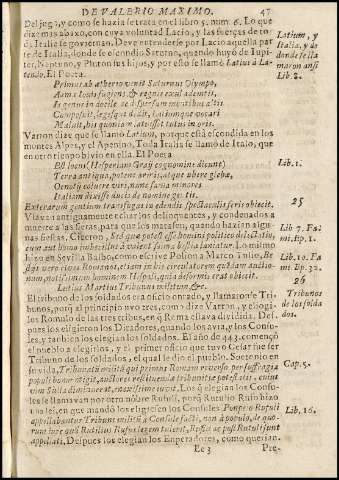 DE VALERIO MAXIMO. 47
Del juez, y como se hazia se trata en el libro 5. num. 6. Lo que
diximos abaxo, con cuya voluntad Lacio, y las fuerças de to-
da Italia se gouernan. Deue entenderse por Lacio aquella par-
te de Italia, donde se escondio Saturno, quando huyò de Iupi-
ter, Neptuno, y Pluton sus hijos, y por esso se llamò Latius à La-
tendo. El Poeta.
Primus ab æthereo venit Saturnus Olympo,
Arma Iouis fugiens, & regnis exul ademptis.
Is genus indocile ac dispersum montibus altis
Composuit, legesque dedit, Latiumque vocari
Maluit, his quoniam latuisset tutus in oris.
Varron dize que se llamò Latium, porque està escondida en los
montes Alpes, y el Apenino, Toda Italia se llamò de Italo, que
en otro tiempo biuio en ella. El Poeta
Est locus (Hesperiam Graij cognomine dicunt)
Terra antiqua, potens armis, atque vbere glebæ,
Oenotrij coluere viri, nunc fama minores
Italiam dixisse ducis de nomine gentem.
Exterarum gentium transfugas in edendis spectaculis feris obiecit.
Vsauan antiguamente echar los delinquentes, y condenados a
muerte a las fieras, para que los matassen, quando hazian algu-
nas fiestas, Ciceron, Sed quæ potest esse homini politico delectatio,
cum aut homo imbecillus à valentissima bestia laniatur. Lo mismo
hizo en Seuilla Balbo, como escriue Polion a Marco Tulio, Be-
stijs vero ciues Romanos, etiam in his circulatorem quædam auctio-
num, notissimum hominem Hispali, quia deformis erat obiecit.
Lucius Martius Tribunus militum, &c.
El tribuno de los soldados era oficio onrado, y llamaronse Tri-
bunos, porq̃ al principio uuo tres, como dize Varron, y eligio-
los Romulo de las tres tribus, en q̃ Roma estaua diuidida. Des-
pues los eligieron los Ditadores, quando los auia, y los Consu-
les, y tambien los elegia los soldados. El año de 443. començò
el pueblo a elegirlos, y el primer oficio que tuuo Cesar fue ser
Tribuno de los Soldados, el qual le dio el pueblo. Suetonio en
su vida, Tribunatu militũ qui primus Romam reuerso per suffragia
populi honor obtigit, auctores restituendæ tribunitiæ potestatis, cuius
vim Sulla diminuerat, enixissime iuuit. Los q̃ elegian los Consu-
les se llamauan por otro nõbre Rufuli, porq̃ Rutilio Rufo hizo
una lei, en que mandò los eligiessen los Consules Porro & Rufuli
appellabantur Tribuni militũ à Consule facti, non à populo, de quo-
rum iure quòd Rutilius Rufus legem tulerit, Rufuli ac post Rutuli sunt
appellati. Despues los elegian los Enperadores, como querian.
Ee 3 Pre-
Latium, y
Italia, y de
donde se lla
maron ansi
Lib. 8.
Lib. 1.
25
Lib. 7. Fa
mi. Ep. 1.
Lib. 10. Fa
mi Ep. 32.
26
Tribunos
de los solda
dos.
Cap. 5.
Lib. 16.